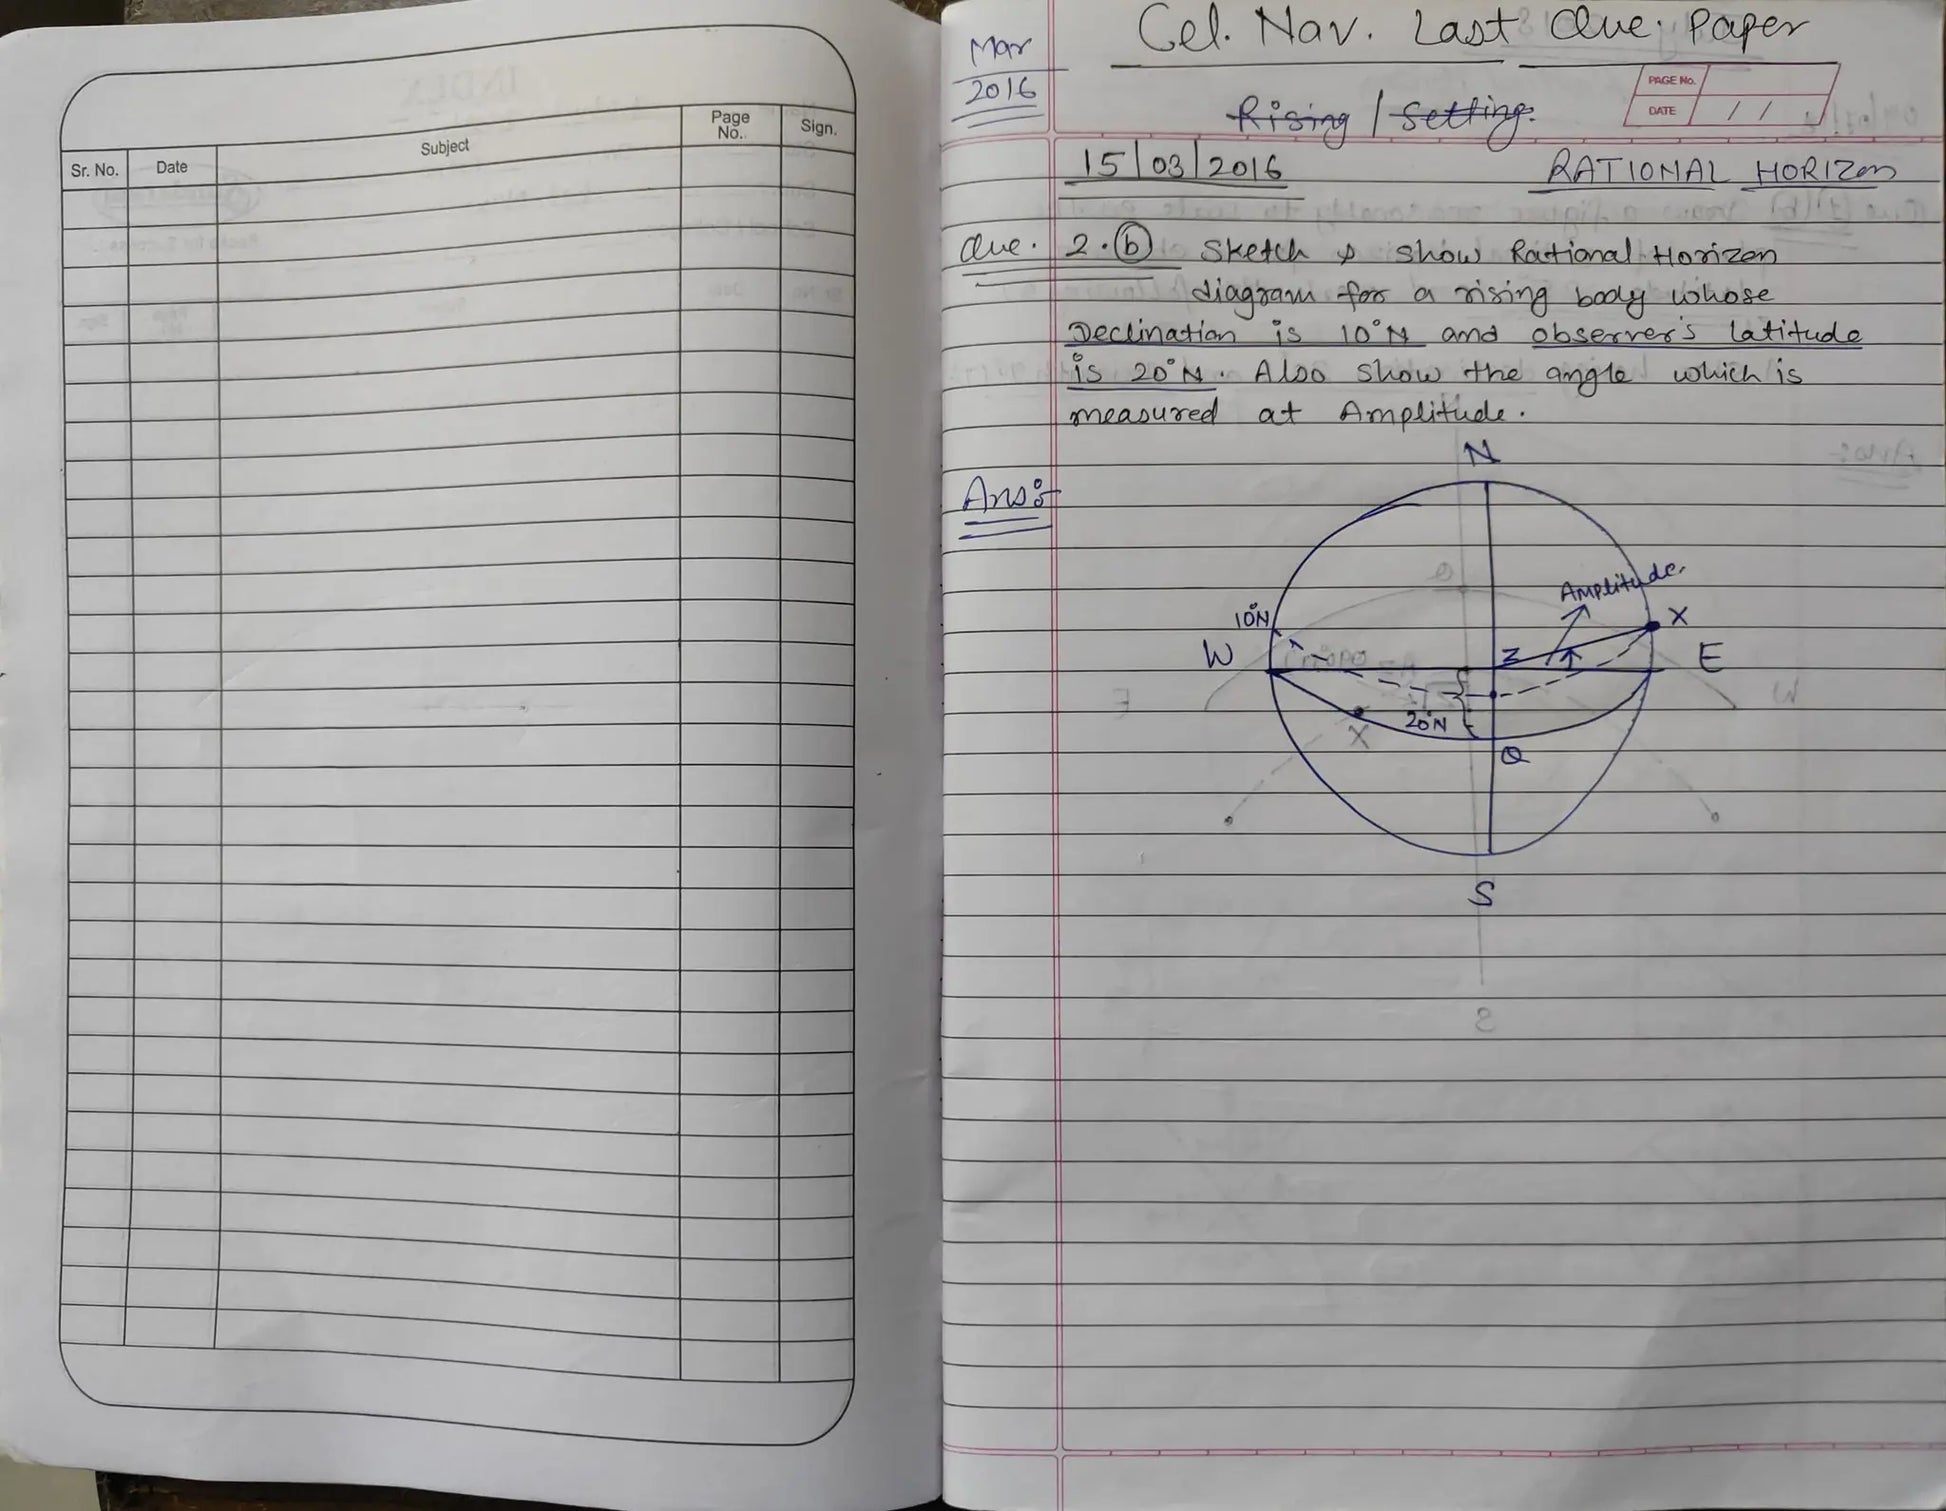 Sr. No.
Date
Subject
Page No.
Sign.
Mar
2016
Cel. Nav. Last Que. Paper
PAGE No.
DATE / /
Rising / Setting.
15/03/2016
RATIONAL HORIZON
Que. 2.(b) Sketch & show Rational Horizon
diagram for a rising body whose
Declination is 10°N and observer's latitude
is 20°N. Also show the angle which is
measured at Amplitude.
Ans:-
N
Amplitude.
10°N
X
W
Z
E
20°N
X
Q
S